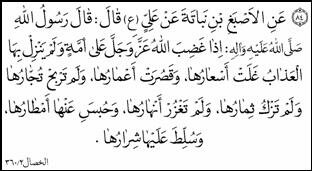 ٨٤ عَنِ الْاَصْبَغِ بْنِ نَباتَةَ عَنْ عَلِيٍّ (ع) قالَ: قالَ رَسُولُ اللهِ
صَلَّى اللهُ عَلَيْهِ وَآلِهِ: اِذا غَضِبَ اللهُ عَزَّ وَجَلَّ عَلى اُمَّةٍ وَلَمْ يَنْزِلْ بِهَا
الْعَذابُ غَلَتْ اَسْعارُها، وَقَصُرَتْ اَعْمارُها، وَلَمْ تَرْبَحْ تُجّارُها
وَلَمْ تَزْكُ ثِمارُها، وَلَمْ تَغْزُرْ اَنْهارُها، وَحُبِسَ عَنْها اَمْطارُها،
وَسُلِّطَ عَلَيْها شِرارُها.
الخصال ٣٦٠/٢